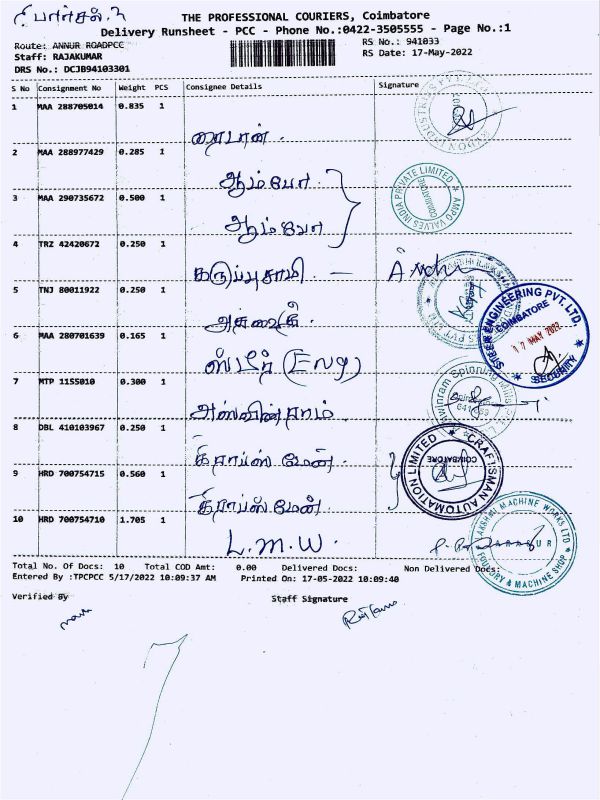 பார்சல்
THE PROFESSIONAL COURIERS, Coimbatore
Delivery Runsheet - PCC - Phone No.:0422-3505555 - Page No.:1
Route: ANNUR ROADPCC RS No.: 941033
Staff: RAJAKUMAR RS Date: 17-May-2022
DRS No.: DCJB94103301
S No Consignment No Weight PCS Consignee Details Signature
1 MAA 288705014 0.835 1
ரைடான்.
2 MAA 288977429 0.285 1
ஆம்போ.
3 MAA 290735672 0.500 1
ஆம்போ
AMPO VALVES INDIA PRIVATE LIMITED
COIMBATORE
4 TRZ 42420672 0.250 1
கருப்புசாமி —
5 TNJ 80011922 0.250 1
STEER ENGINEERING PVT. LTD.
COIMBATORE
17 MAY 2022
SECURITY
6 MAA 280701639 0.165 1
ஸ்டீர் (Eng)
7 MTP 1155010 0.300 1
அஸ்வின்ராம்
8 DBL 410103967 0.250 1
கிராப்ஸ் மேன்.
CRAFTSMAN AUTOMATION LIMITED
COIMBATORE
9 HRD 700754715 0.560 1
கிராப்ஸ்மேன்.
10 HRD 700754710 1.705 1
L.M.W.
LAKSHMI MACHINE WORKS LTD
FOUNDRY & MACHINE SHOP
Total No. Of Docs: 10 Total COD Amt: 0.00 Delivered Docs: Non Delivered Docs:
Entered By :TPCPCC 5/17/2022 10:09:37 AM Printed On: 17-05-2022 10:09:40
Verified By Staff Signature